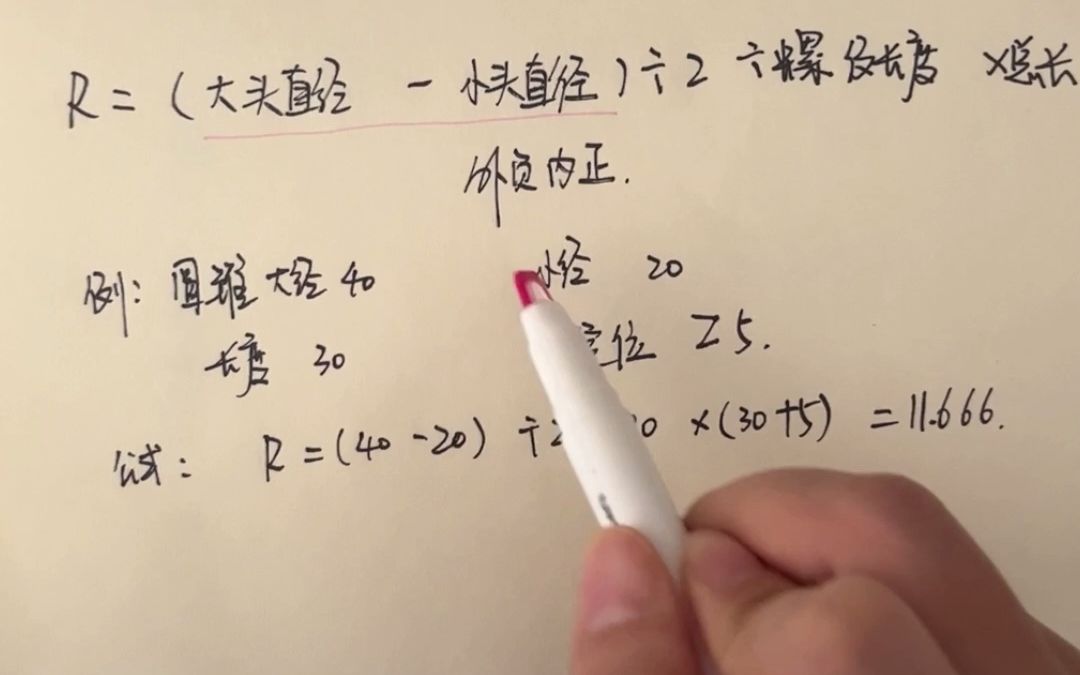 R=(大头直径 -小头直径)÷2 ÷螺纹长度 ×总长
外负内正.
例: 圆锥大径40 小径 20
长度 30 定位 Z5.
公式: R=(40-20) ÷2 0 ×(30+5) =11.666.